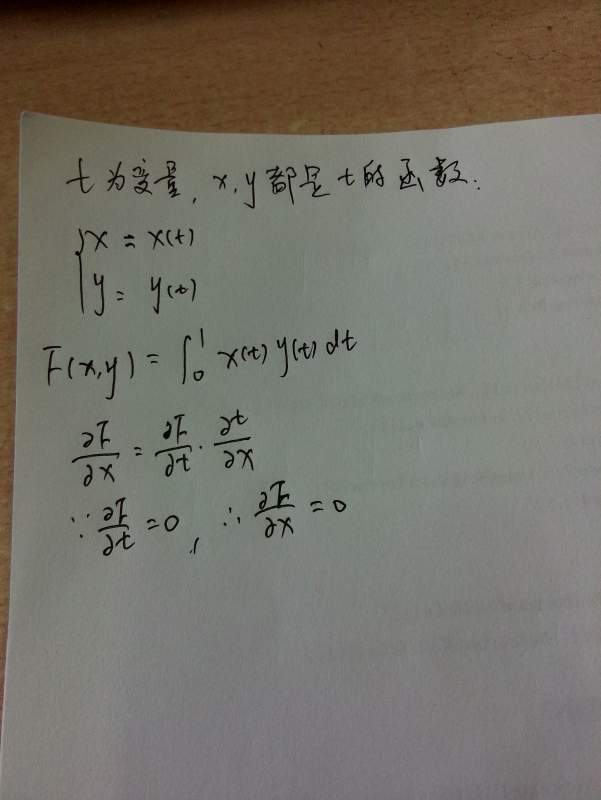 t为变量, x,y都是t的函数.
{x = x(t)
y = y(t)
F(x,y) = ∫₀¹ x(t) y(t) dt
∂F/∂x = ∂F/∂t · ∂t/∂x
∵ ∂F/∂t = 0, ∴ ∂F/∂x = 0